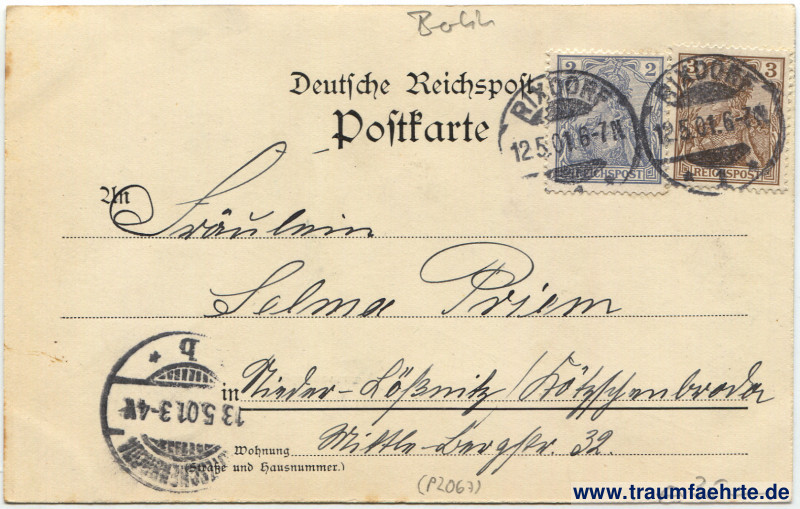 Berlin
Deutsche Reichspost
Postkarte
2 2
REICHSPOST
3 3
REICHSPOST
RIXDORF
12.5.01.6-7N.
* 1 *
RIXDORF
12.5.01.6-7N.
* 1 *
An
Fräulein
Selma Priem
in Nieder-Lößnitz/Kötzschenbroda
Mittle-Bergstr. 32.
Wohnung
(Straße und Hausnummer.)
* b
13.5.01.3-4N.
KÖTZSCHENBRODA
(P2067)
www.traumfaehrte.de